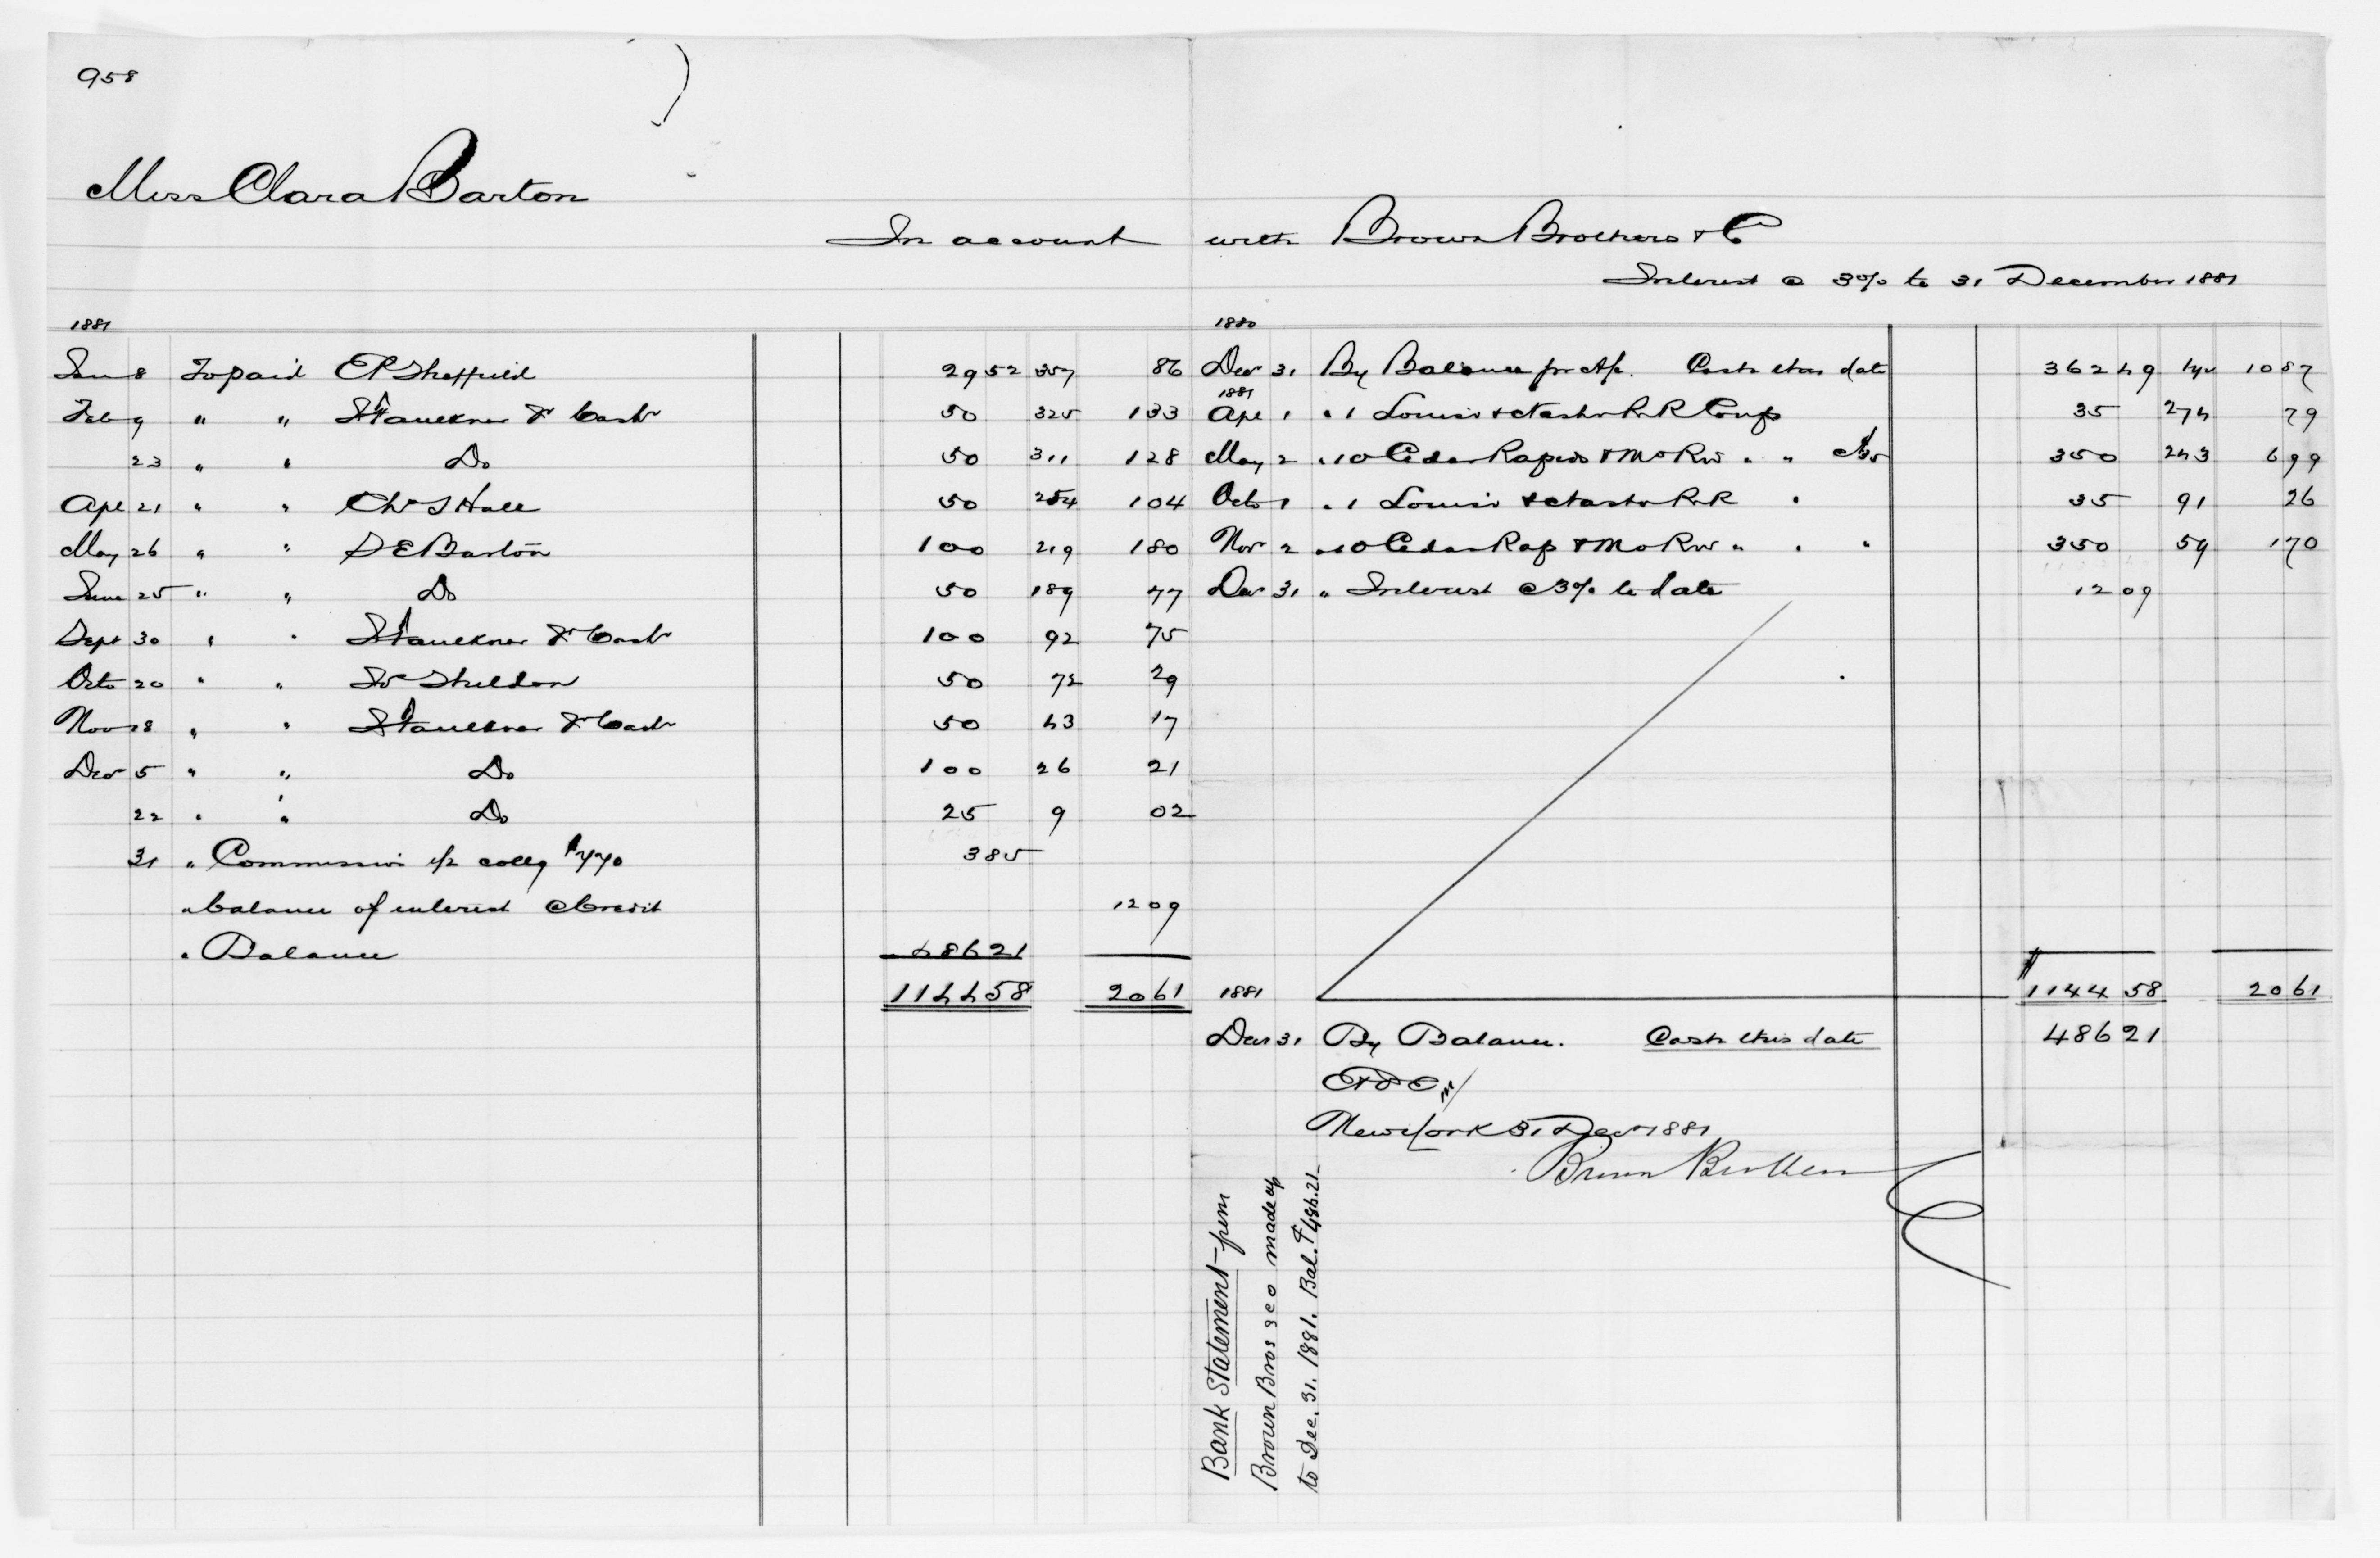 958
Miss Clara Barton
In account with Brown Brothers & Co
Interest @ 3% to 31 December 1881
1881
Jan 8 To paid EP Sheffield 29 52 357 86
Feb 9 " " Faulkner Jr Cash 50 325 133
23 " " Do 50 311 128
Apl 21 " " Hall 50 254 104
May 26 " " S E Barton 100 219 180
June 25 " " Do 50 189 77
Sept 30 " " Faulkner Jr Cash 100 92 75
Octo 20 " " Sheldon 50 72 29
Nov 18 " " Faulkner Jr Cash 50 43 17
Decr 5 " " Do 100 26 21
22 " " Do 25 9 02
31 " Commission 1/2 collg $770 3 85
" balance of interest @ Credit 12 09
" Balance 486 21
1144 58 20 61
1880
Decr 31 By Balance pr a/c. Cash this date 362 49 10 87
1881
Apl 1 " 1 Louisv & Nashv R.R Coup 35 274 79
May 2 " 10 Cedar Rapids & Mo Rr " " 350 243 6 99
Octo 1 " 1 Louisv & Nashv R.R " 35 91 26
Nov 2 " 10 Cedar Rap & Mo Rr " " " 350 59 1 70
Decr 31 " Interest @ 3% to date 12 09
1144 58 20 61
1881
Decr 31 By Balance. Cash this date 486 21
E & O E
New York 31 Decr 1881
Brown Brothers & Co
Bank Statement from
Brown Bros & Co made up
to Dec. 31. 1881. Bal. $486.21